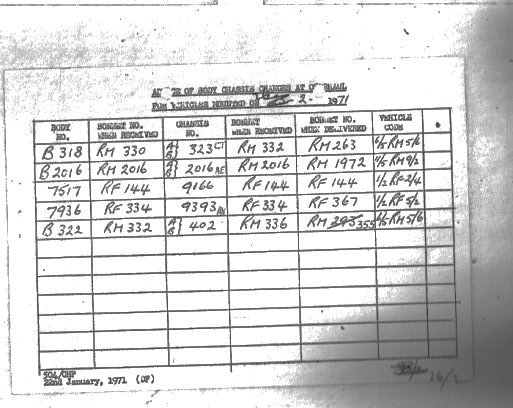 OF BODY CHASSIS CHANGES AT
FOR VEHICLES 2. 1971
BODY NO. BONNET NO. WHEN RECEIVED CHASSIS NO. BONNET WHEN RECEIVED BONNET NO. WHEN DELIVERED VEHICLE CODE
B318 RM 330 A/B} 323 CT RM 332 RM 263 6/5 RM 5/6
B2016 RM 2016 A/B} 2016 AE RM 2016 RM 1972 RM 9/2
7517 RF 144 9166 RF 144 RF 144 1/2 RF 2/4
7936 RF 334 9393 RF 334 RF 367 1/2 RF 5/2
B 322 RM 332 A/B} 402 RM 336 RM 395 355 6/5 RM 5/6
504/CHP
22nd January, 1971 (DP)
26/2